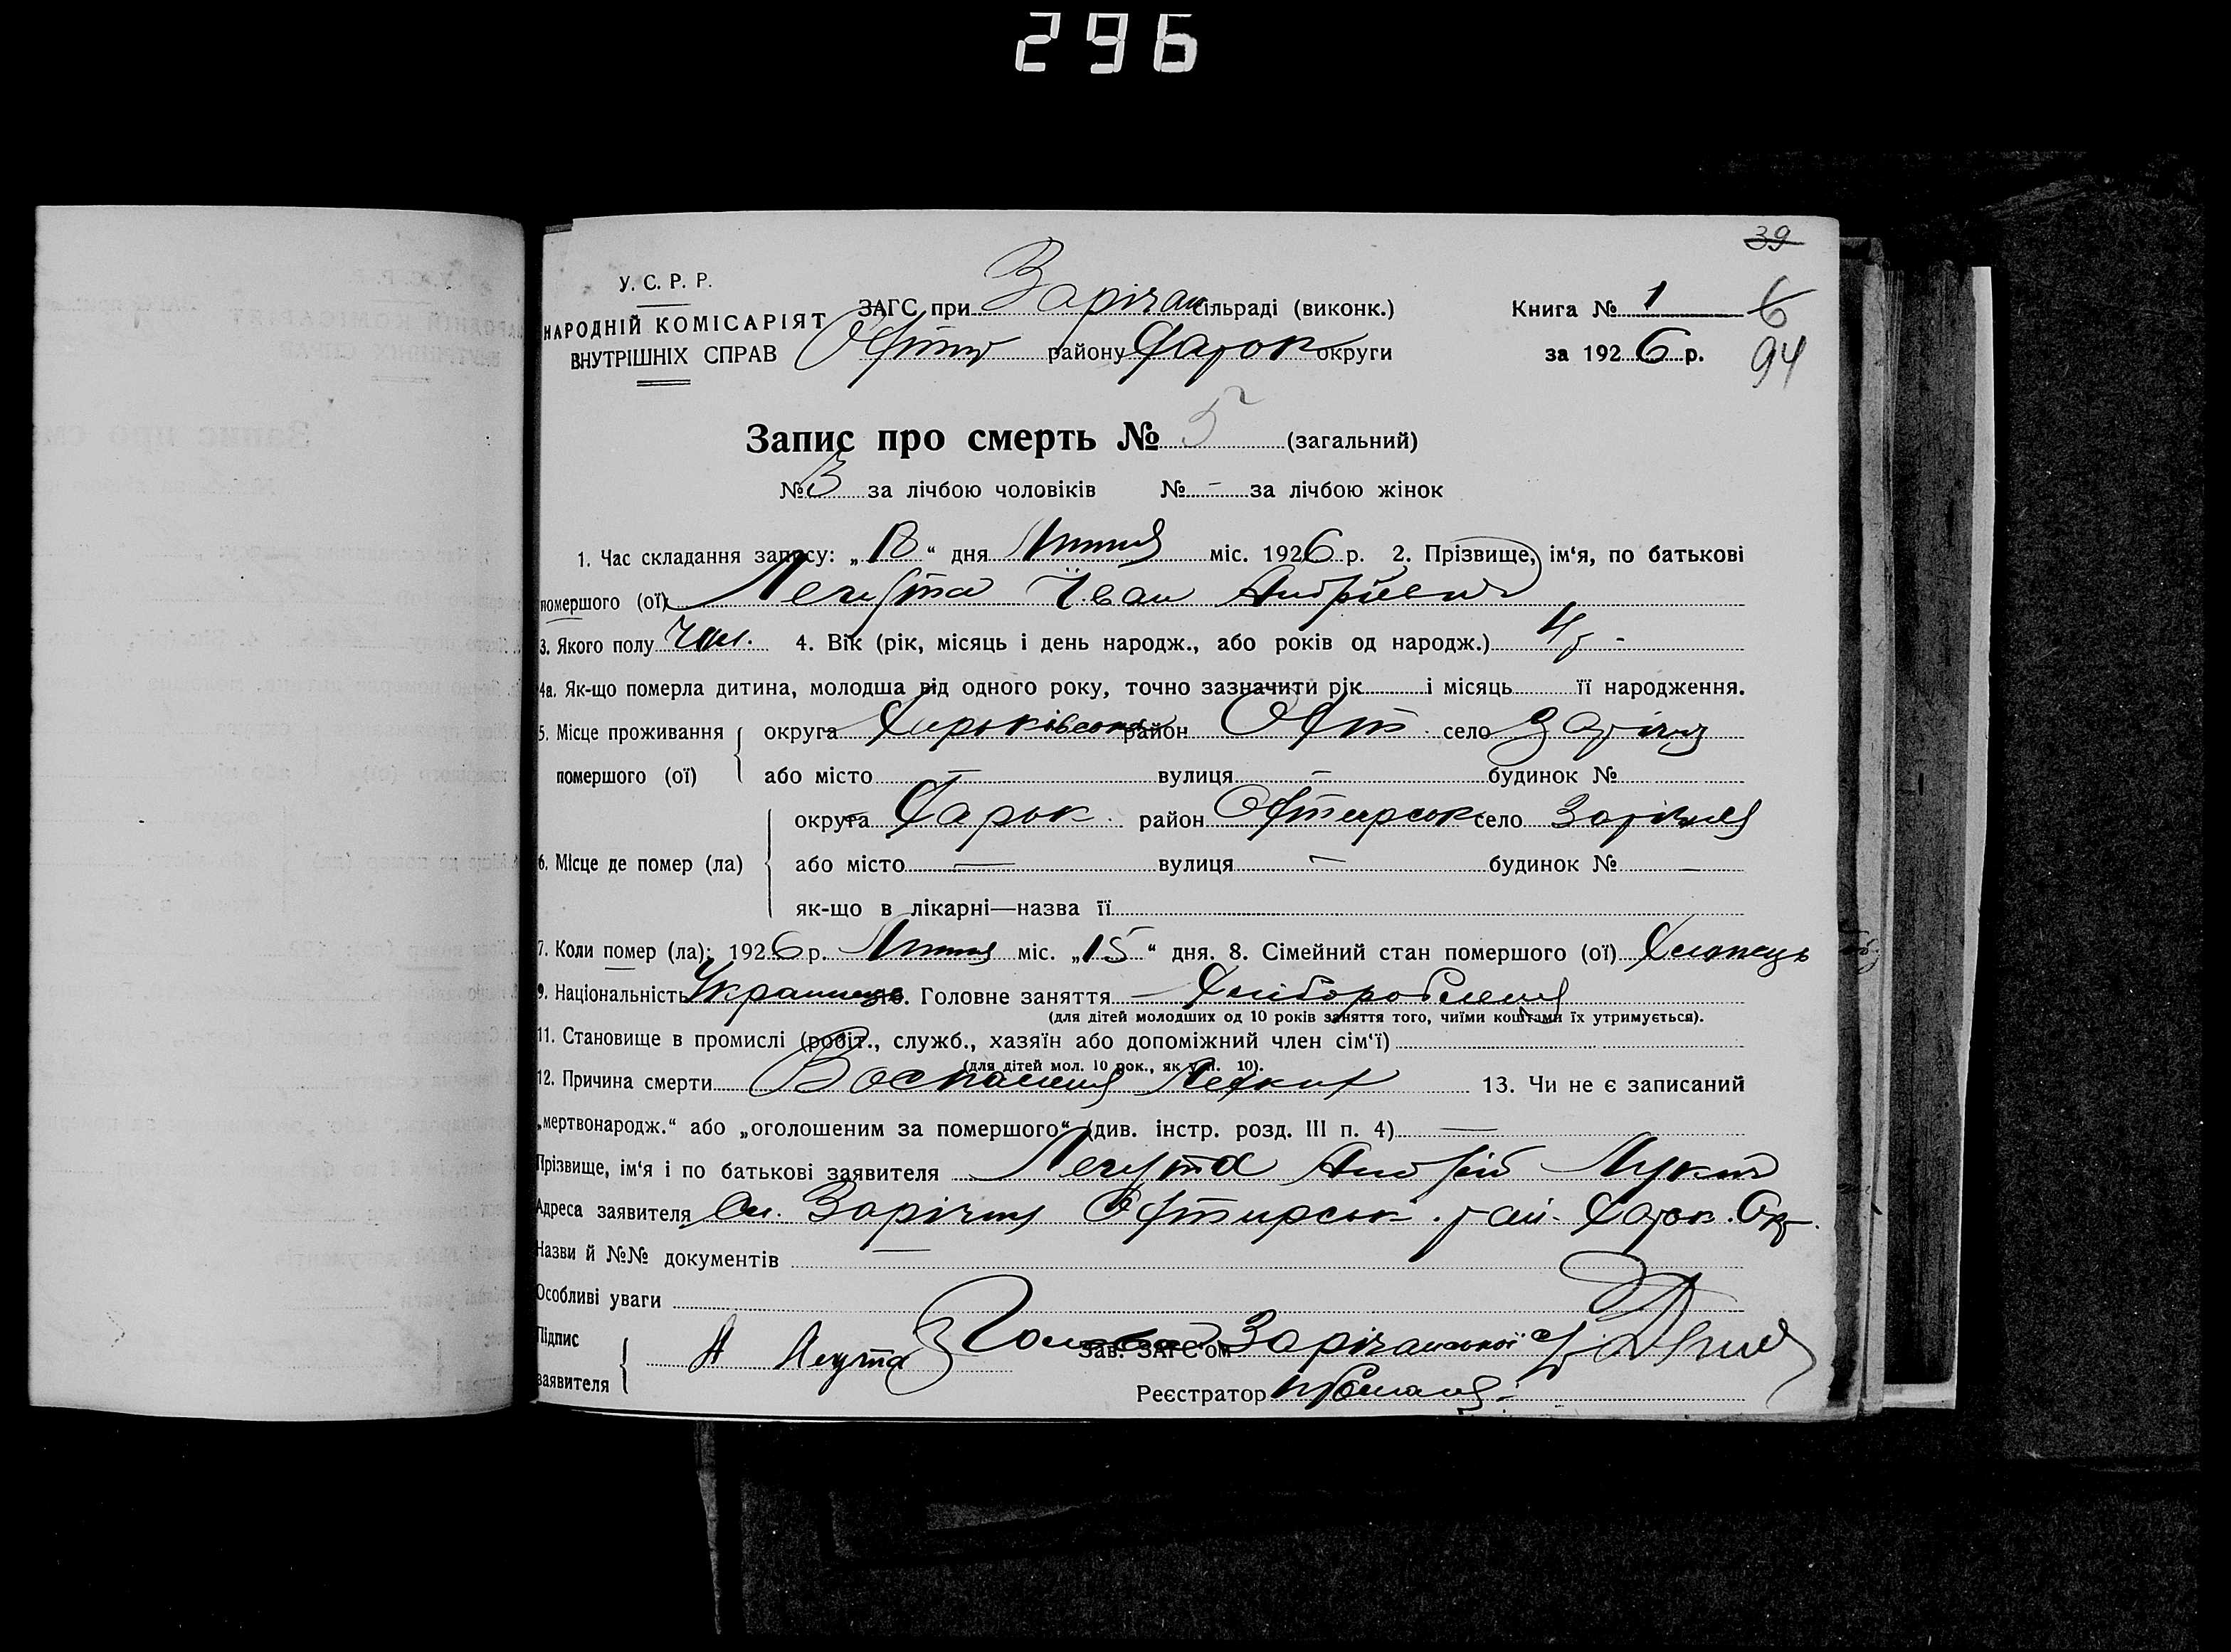 296
39
У. С. Р. Р.
НАРОДНІЙ КОМІСАРІЯТ
ВНУТРІШНІХ СПРАВ
ЗАГС при Зарічан сільраді (виконк.)
району Харок округи
Книга № 1
за 1926 р.
6
94
Запис про смерть № 5 (загальний)
№ 3 за лічбою чоловіків № - за лічбою жінок
1. Час складання запису: „18“ дня Липня міс. 1926 р. 2. Прізвище, ім‘я, по батькові
помершого (ої) Легута Іван Андрієвич
3. Якого полу чол. 4. Вік (рік, місяць і день народж., або років од народж.) 4 р -
4а. Як-що померла дитина, молодша від одного року, точно зазначити рік і місяць її народження.
5. Місце проживання помершого (ої) округа Харьківська район Охт. село Зарічня
або місто — вулиця — будинок №
6. Місце де помер (ла) округа Харьк. район Охтирськ село Зарічня
або місто — вулиця — будинок № —
як-що в лікарні—назва її
7. Коли помер (ла): 1926 р. Липня міс. „15“ дня. 8. Сімейний стан помершого (ої) Хлопець
9. Національність Украинець 10. Головне заняття - Хліборобления
(для дітей молодших од 10 років заняття того, чиїми коштами їх утримується).
11. Становище в промислі (робіт., служб., хазяїн або допоміжний член сім‘ї)
(для дітей мол. 10 рок., як у п. 10).
12. Причина смерти Воспаления Легких 13. Чи не є записаний
„мертвонародж.“ або „оголошеним за помершого“ (див. інстр. розд. III п. 4) —
Прізвище, ім‘я і по батькові заявителя Легута Андрій Лукич
Адреса заявителя Сл. Зарічня Охтирськ. рай. Харьк. Окр.
Назви й №№ документів —
Особливі уваги
Підпис
заявителя
А Легута
Голова Зарічанської с/р
Зав. ЗАГС‘ом
Реєстратор